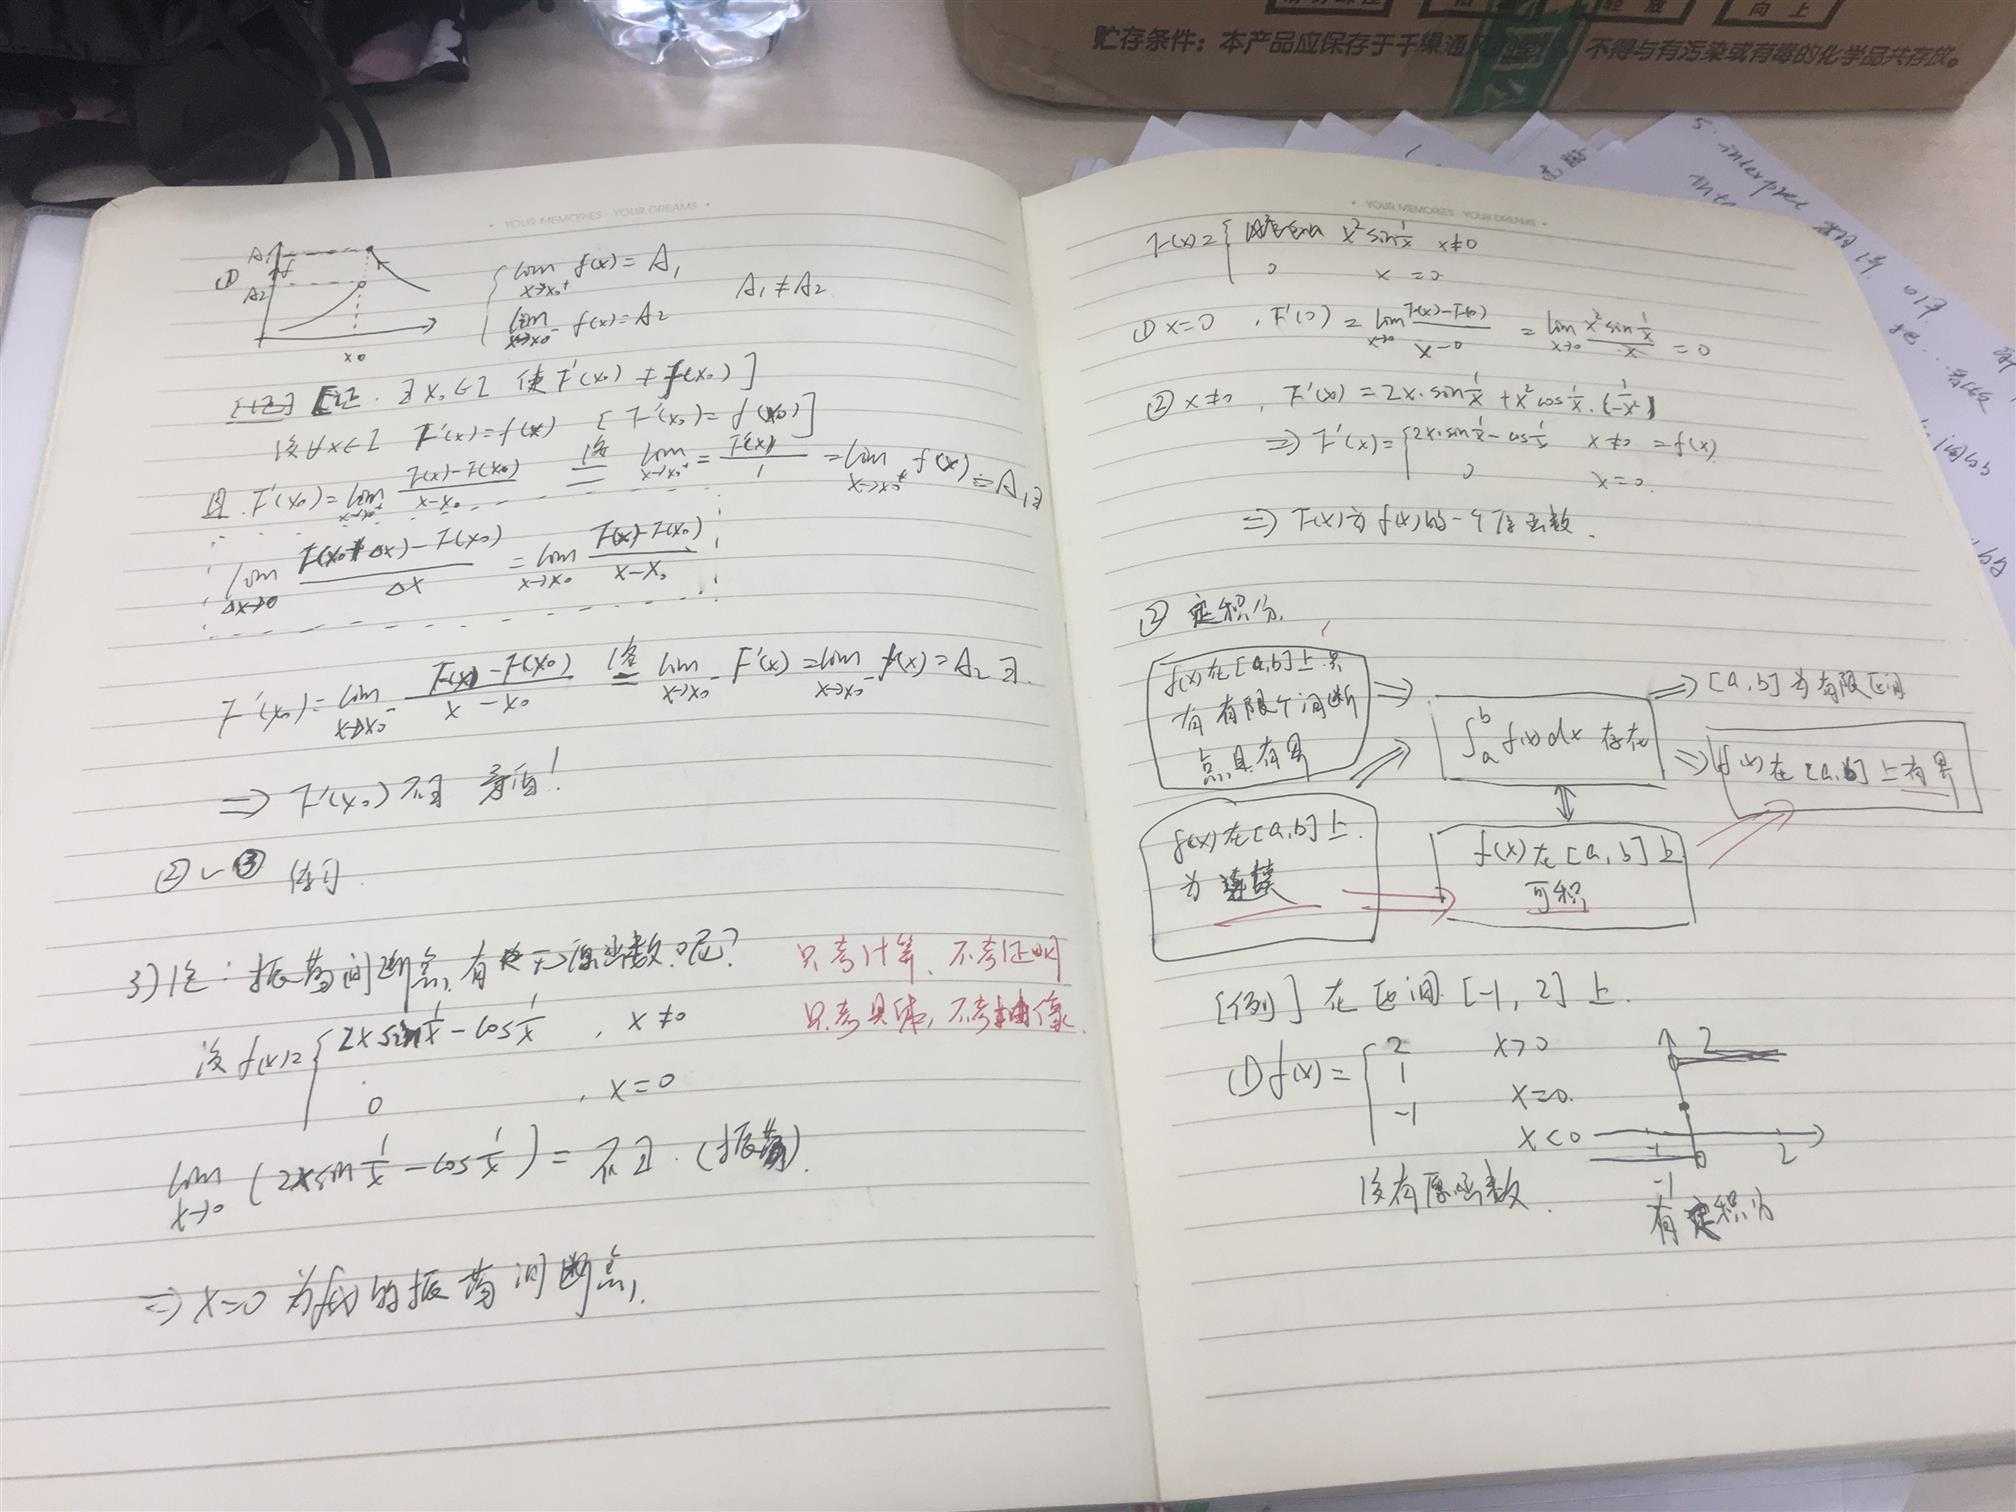 贮存条件：本产品应保存于干燥通风 不得与有污染或有毒的化学品共存放。
向上
5. interpret
YOUR MEMORIES · YOUR DREAMS
① A₁ A₂ x₀
lim x→x₀⁺ f(x) = A₁
lim x→x₀⁻ f(x) = A₂
A₁ ≠ A₂
[证. ∃ x₀∈I 使 F'(x₀) ≠ f(x₀)]
设 ∀x∈I F'(x) = f(x) [F'(x₀) = f(x₀)]
且 F'(x₀) = lim x→x₀⁺ (F(x)-F(x₀))/(x-x₀) 洛= lim x→x₀⁺ = F'(x)/1 = lim x→x₀⁺ f(x) = A₁ ∃
lim Δx→0 (F(x₀+Δx)-F(x₀))/Δx = lim x→x₀ (F(x)-F(x₀))/(x-x₀)
F'(x₀) = lim x→x₀⁻ (F(x)-F(x₀))/(x-x₀) 洛= lim x→x₀⁻ F'(x) = lim x→x₀⁻ f(x) = A₂ ∃.
⇒ F'(x₀) 不∃ 矛盾!
② ~ ③ 练习
3) 注: 振荡间断点, 有无原函数呢?
只考计算、不考证明
只考具体, 不考抽象.
设 f(x) = { 2x sin 1/x - cos 1/x , x≠0
0 , x=0
lim x→0 (2x sin 1/x - cos 1/x) = 不∃. (振荡).
⇒ x=0 为 f(x) 的振荡间断点.
YOUR MEMORIES · YOUR DREAMS
F(x) = { x² sin 1/x x≠0
0 x=0
① x=0 , F'(0) = lim x→0 (F(x)-F(0))/(x-0) = lim x→0 (x² sin 1/x)/x = 0
② x≠0 , F'(x) = 2x·sin 1/x + x² cos 1/x · (1/-x²)
⇒ F'(x) = { 2x·sin 1/x - cos 1/x x≠0 = f(x)
0 x=0.
⇒ F(x) 为 f(x) 的一个原函数.
② 定积分.
f(x) 在 [a,b] 上只
有有限个间断
点且有界
⇒ ∫ₐᵇ f(x)dx 存在
⇒ [a,b] 为有限区间
⇒ f(x) 在 [a,b] 上有界
f(x) 在 [a,b] 上
为连续
f(x) 在 [a,b] 上
可积
[例] 在区间 [-1, 2] 上.
(1) f(x) = { 2 x>0
1 x=0.
-1 x<0
2 -1 0 2 -1
没有原函数.
有定积分